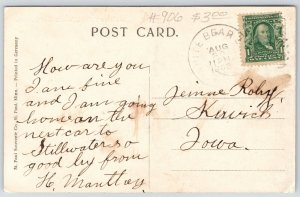 #906 $3.00
POST CARD.
BEAR
AUG
How are you
I am fine
and I am going
home on the
next car to
Stillwater so
good by from
H. Manttay
Jennie Roby
Iowa.
St. Paul Souvenir Co., St. Paul, Minn. — Printed in Germany